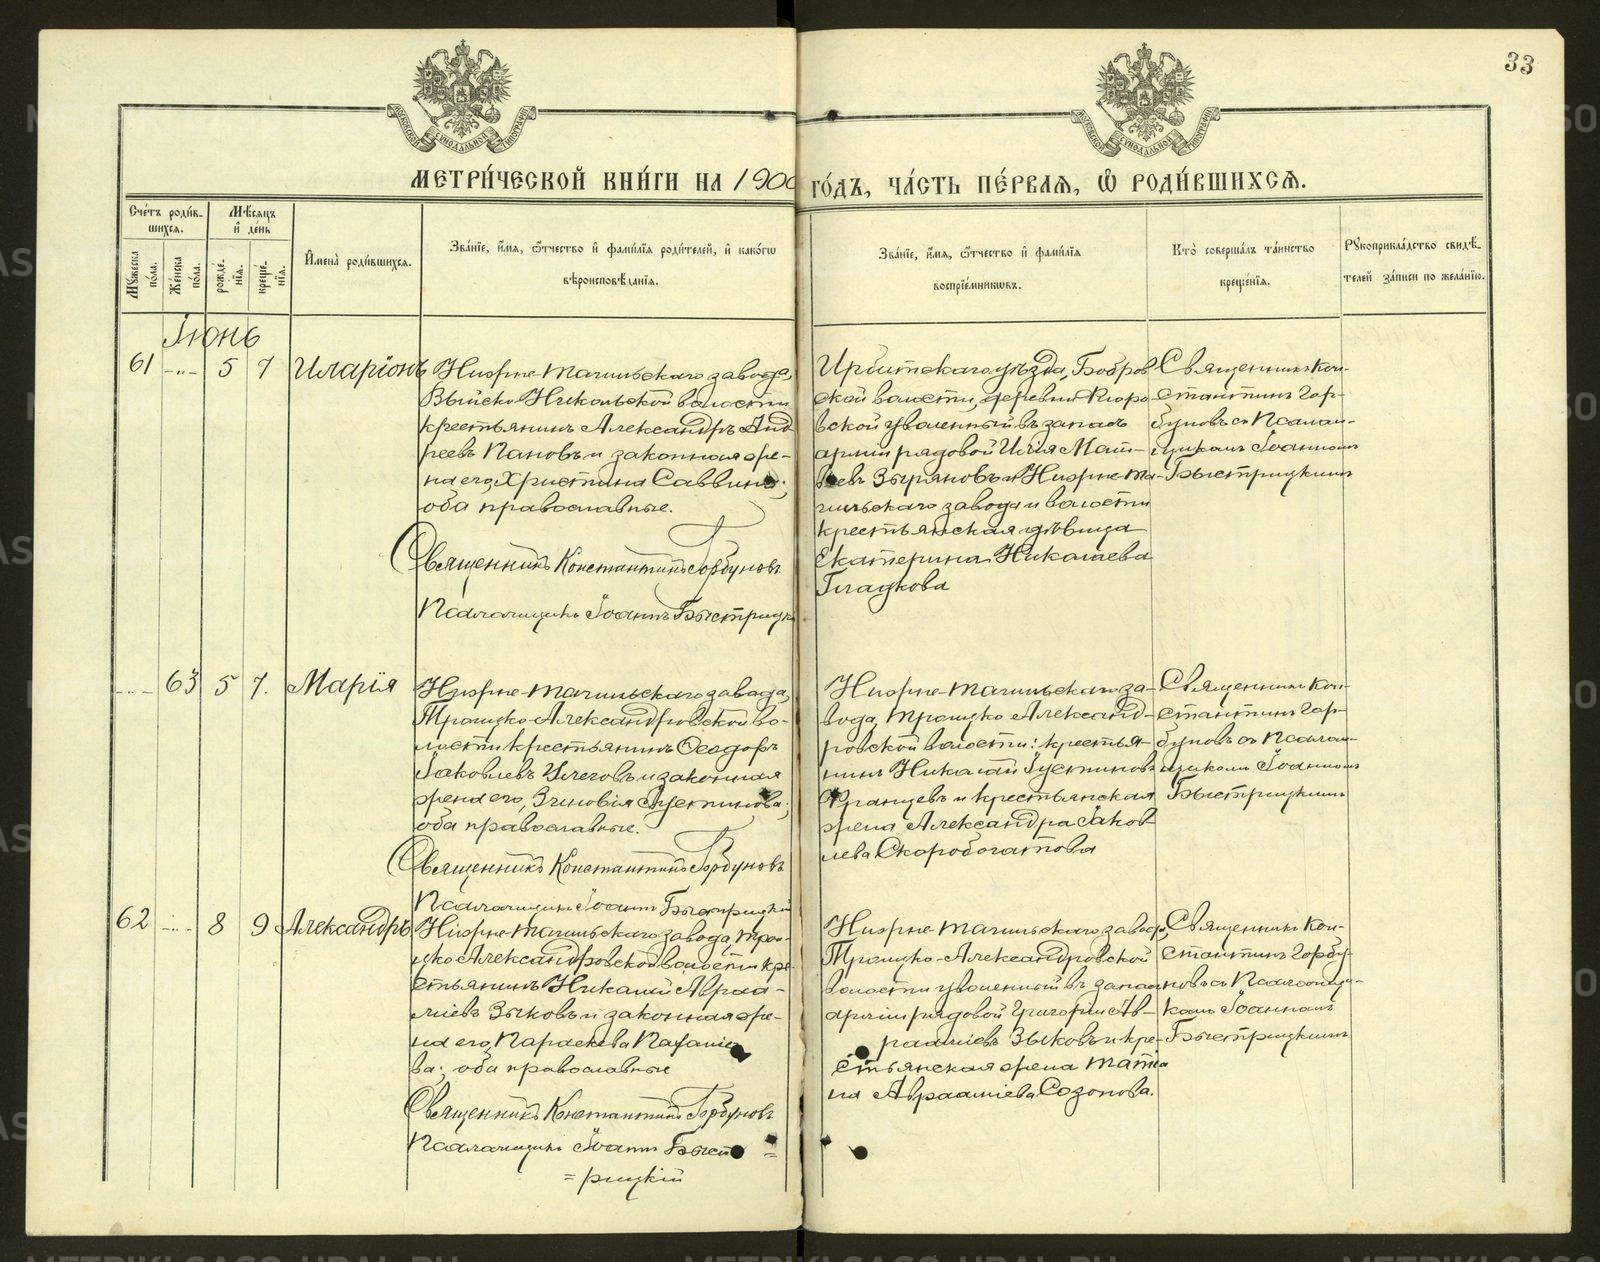 33
МЕТРИ́ЧЕСКОЙ КНИ́ГИ НА 1900 ГО́ДЪ, ЧА́СТЬ ПЕ́РВАѦ, Ѽ РОДИ́ВШИХСѦ.
Сче́тъ роди́в-
шихся.
Мѣ́сяцъ
и҆ де́нь
Му́жеска
по́ла.
Же́нска
по́ла.
рожде́-
нїя.
креще́-
нїя.
И҆мена̀ роди́вшихся.
Зва́нїе, и҆́мя, ѻ҆́тчество и҆ фами́лїя роди́телей, и҆ како́гѡ
вѣроисповѣ́данїя.
Зва́нїе, и҆́мя, ѻ҆́тчество и҆ фами́лїя
воспрїе́мникѡвъ.
Кто̀ соверша́лъ та́инство
креще́нїя.
Рꙋкоприкла́дство свидѣ́-
телей за́писи по жела́нїю.
Іюнь
61 -"- 5 7 Иларіонъ
Нижне-Тагильскаго завода,
Выйско-Никольской волости
крестьянинъ Александръ Анд
реевъ Пановъ и законная же-
на его, Христина Саввина;
оба православные.
Священникъ Константинъ Горбуновъ
Псаломщикъ Іоаннъ Быстрицк
Ирбитскаго уѣзда, Бобров
ской волости, деревни
вской уволенный въ запасъ
арміи рядовой Илія Мат-
вѣевъ Зыряновъ и Нижне-Та-
гильскаго завода и волости
крестьянская дѣвица
Екатерина Николаева
Гладкова
Священникъ Кон-
стантинъ Гор-
буновъ съ Псалом-
щикомъ Іоанномъ
Быстрицкимъ
-"- 63 5 7. Марія
Нижне-Тагильскаго завода,
Троицко-Александровской во-
лости крестьянинъ Ѳеодоръ
Іаковлевъ и законная
жена его, Зиновія Іустинова;
оба православные.
Священникъ Константинъ Горбуновъ
Псаломщикъ Іоаннъ Быстрицкій
Нижне-Тагильскаго за-
вода, Троицко Александ-
ровской волости: крестья-
нинъ Николай Іустиновъ
Францевъ и крестьянская
жена Александра Іаков
лева Скоробогатова
Священникъ Кон-
стантинъ Гор-
буновъ съ Псалом-
щикомъ Іоанномъ
Быстрицкимъ
62 -"- 8 9 Александръ
Нижне-Тагильскаго завода, Трои-
цко Александровской волости кре-
стьянинъ Николай Авраа-
міевъ Зыковъ и законная же-
на его, Параскева
ва; оба православные
Священникъ Константинъ Горбуновъ
Псаломщикъ Іоаннъ Быст =
= рицкій
Нижне-Тагильскаго завода,
Троицко-Александровской
волости уволенный въ запас
арміи рядовой Григорій Ав-
рааміевъ Зыковъ и кре-
стьянская жена Татіа
на Аврааміева Созонова.
Священникъ Кон-
стантинъ Горбу-
новъ съ Псаломщи-
комъ Іоанномъ
Быстрицкимъ